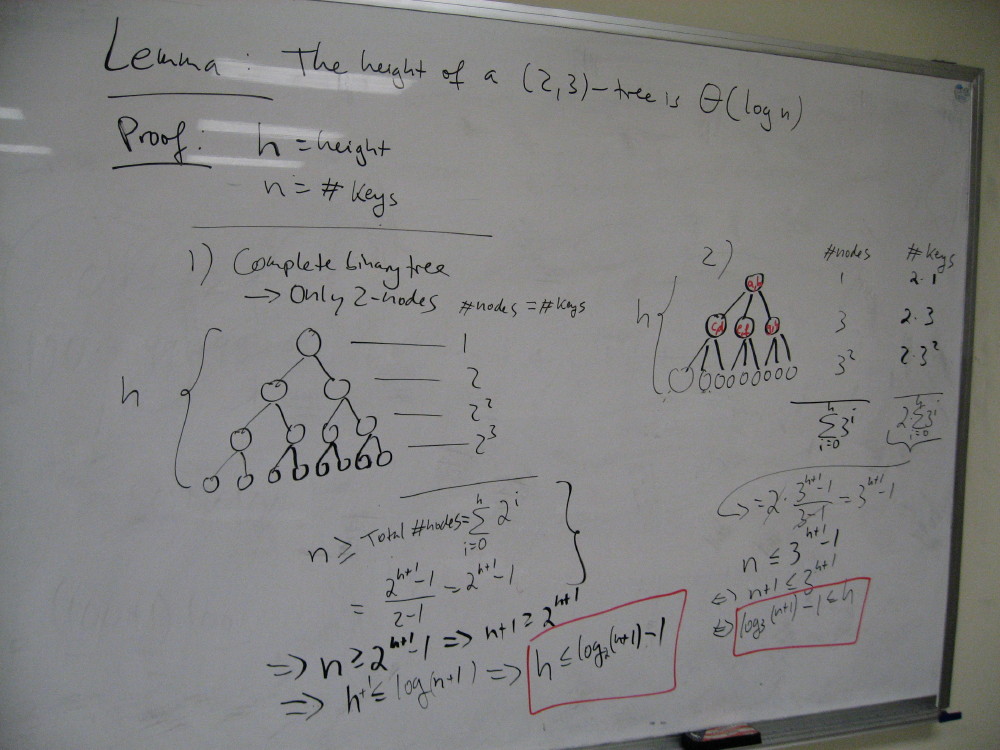 Lemma: The height of a (2,3)-tree is Θ(log n)
Proof: h = height
n = # keys
1) Complete binary tree
→ Only 2-nodes #nodes = #keys
h
1
2
2²
2³
n ≥ Total #nodes = ∑_{i=0}^{h} 2^i
= (2^{h+1}-1)/(2-1) = 2^{h+1}-1
=> n ≥ 2^{h+1}-1 => n+1 ≥ 2^{h+1}
=> h+1 ≤ log(n+1) => h ≤ log₂(n+1)-1
2) #nodes #keys
h
a,b 1 2·1
c,d e,f 3 2·3
3² 2·3²
∑_{i=0}^{h} 3^i 2·∑_{i=0}^{h} 3^i
↳ = 2·(3^{h+1}-1)/(3-1) = 3^{h+1}-1
n ≤ 3^{h+1}-1
<=> n+1 ≤ 3^{h+1}
<=> log₃(n+1)-1 ≤ h